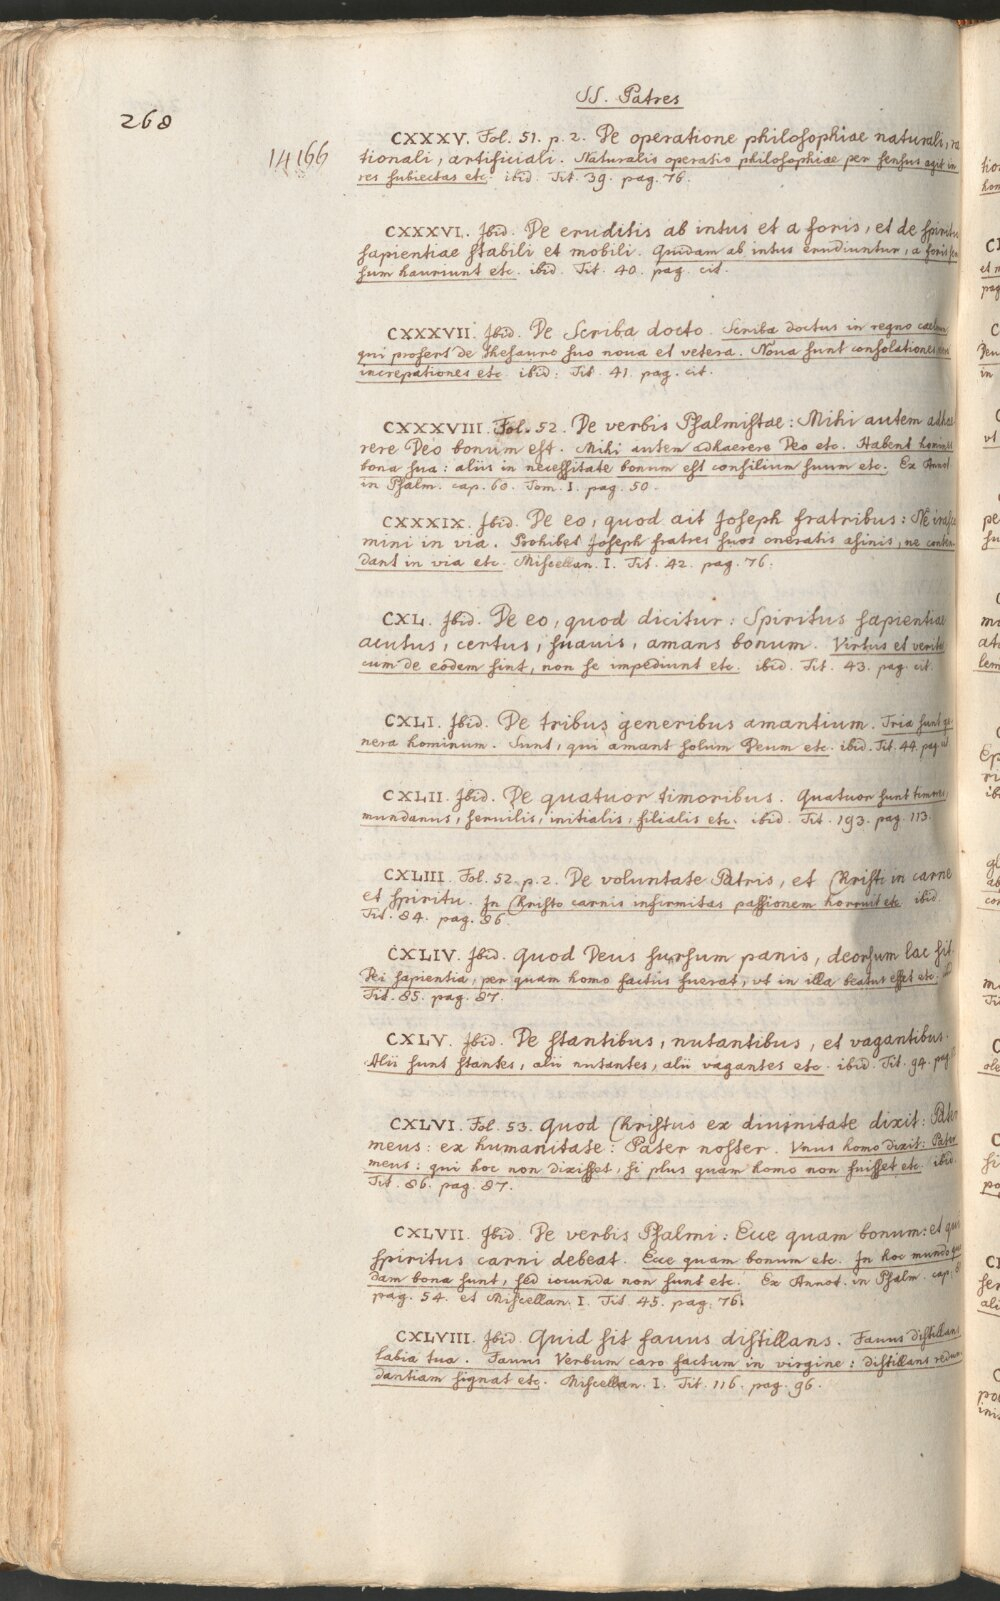 SS. Patres
268
14166
CXXXV. Fol. 51. p. 2. De operatione philosophiae naturali, ra
tionali, artificiali. Naturalis operatio philosophiae per sensus agit in
res subiectas etc. ibid. Tit. 39. pag. 76.
CXXXVI. Ibid. De eruditis ab intus et a foris, et de spiritu
sapientiae stabili et mobili. Quidam ab intus erudiuntur, a foris sen
sum hauriunt etc. ibid. Tit. 40. pag. cit.
CXXXVII. Ibid. De Scriba docto. Scriba doctus in regno caelorum
qui profert de thesauro suo noua et vetera. Noua sunt consolationes
increpationes etc. ibid. Tit. 41. pag. cit.
CXXXVIII. Fol. 52. De verbis Psalmistae: Mihi autem adhae
rere Deo bonum est. Mihi autem adhaerere Deo etc. Habent homines
bona sua: aliis in necessitate bonum est consilium suum etc. Ex Annot
in Psalm. cap. 60. Tom. I. pag. 50.
CXXXIX. Ibid. De eo, quod ait Joseph fratribus: Ne irasci
mini in via. Prohibet Joseph fratres suos oneratis asinis, ne conten
dant in via etc. Miscellan. I. Tit. 42. pag. 76.
CXL. Ibid. De eo, quod dicitur: Spiritus sapientiae
acutus, certus, suauis, amans bonum. Virtus et veritas
cum de eodem sint, non se impediunt etc. ibid. Tit. 43. pag. cit.
CXLI. Ibid. De tribus generibus amantium. Tria sunt ge
nera hominum. Sunt, qui amant solum Deum etc. ibid. Tit. 44. pag. cit
CXLII. Ibid. De quatuor timoribus. Quatuor sunt timores,
mundanus, seruilis, initialis, filialis etc. ibid. Tit. 193. pag. 113.
CXLIII. Fol. 52. p. 2. De voluntate Patris, et Christi in carne
et spiritu. In Christo carnis infirmitas passionem horruit etc. ibid.
Tit. 84. pag. 86.
CXLIV. Ibid. Quod Deus sursum panis, deorsum lac sit.
Dei sapientia, per quam homo factus fuerat, vt in illa beatus esset etc. ibid
Tit. 85. pag. 87.
CXLV. Ibid. De stantibus, nutantibus, et vagantibus.
Alii sunt stantes, alii nutantes, alii vagantes etc. ibid. Tit. 94. pag.
CXLVI. Fol. 53. Quod Christus ex diuinitate dixit: Pater
meus: ex humanitate: Pater noster. Vnus homo dixit: Pater
meus: qui hoc non dixisset, si plus quam homo non fuisset etc. ibid.
Tit. 86. pag. 87.
CXLVII. Ibid. De verbis Psalmi: Ecce quam bonum: et quid
spiritus carni debeat. Ecce quam bonum etc. In hoc mundo quae
dam bona sunt, sed iocunda non sunt etc. Ex Annot. in Psalm. cap.
pag. 54. et Miscellan. I. Tit. 45. pag. 76.
CXLVIII. Ibid. Quid sit fauus distillans. Fauus distillans
labia tua. Fauus Verbum caro factum in virgine: distillans redun
dantiam signat etc. Miscellan. I. Tit. 116. pag. 96.